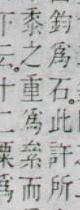 鈞爲石。此許所
黍之重爲絫而
十云。十二粟爲